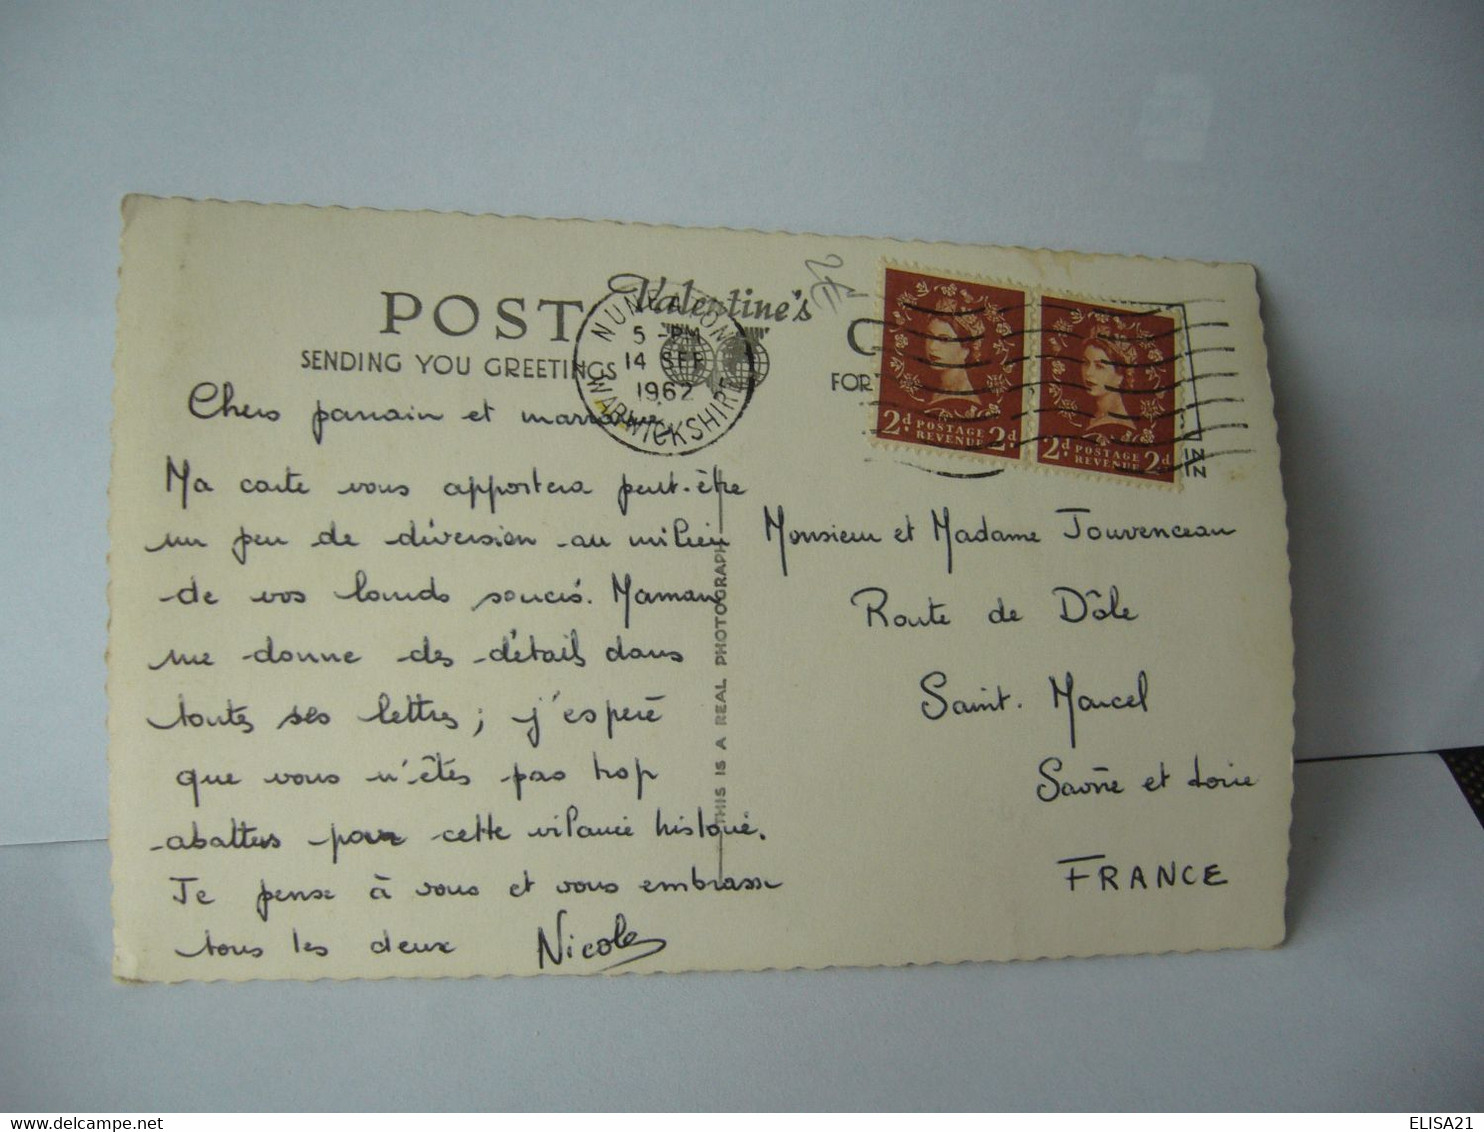 POST
Valentine's
SENDING YOU GREETINGS
FOR
NUNEATON
5 - PM
14 SEP
1962
WARWICKSHIRE
2d POSTAGE REVENUE 2d
2d POSTAGE REVENUE 2d
Chers parrain et marraine
Ma carte vous apportera peut-être
un peu de diversion au milieu
de vos lourds soucis. Maman
me donne des détails dans
toutes ses lettres ; j'espère
que vous n'êtes pas trop
abattus pour cette vilaine histoire.
Je pense à vous et vous embrasse
tous les deux Nicole
THIS IS A REAL PHOTOGRAPH
Monsieur et Madame Jouvenceau
Route de Dôle
Saint. Marcel
Saône et Loire
FRANCE
ELISA21